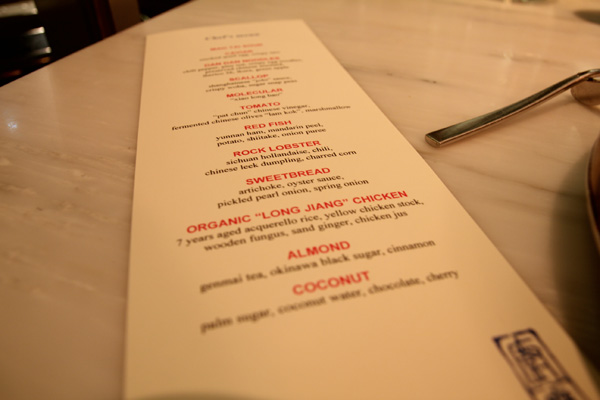 Chef's menu
CAVIAR
DAN DAN NOODLES
SCALLOP
crispy woba, sugar snap peas
MOLECULAR
"xiao long bao"
TOMATO
"pat chun" chinese vinegar,
fermented chinese olives "lam kok", marshmallow
RED FISH
yunnan ham, mandarin peel,
potato, shiitake, onion puree
ROCK LOBSTER
sichuan hollandaise, chili,
chinese leek dumpling, charred corn
SWEETBREAD
artichoke, oyster sauce,
pickled pearl onion, spring onion
ORGANIC "LONG JIANG" CHICKEN
7 years aged acquerello rice, yellow chicken stock,
wooden fungus, sand ginger, chicken jus
ALMOND
genmai tea, okinawa black sugar, cinnamon
COCONUT
palm sugar, coconut water, chocolate, cherry